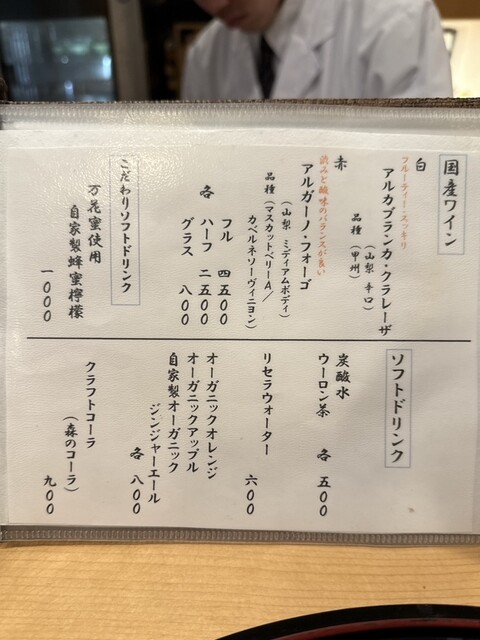 国産ワイン
白
フルーティー・スッキリ
アルカブランカ・クラレーザ
（山梨 辛口）
品種（甲州）
赤
渋みと酸味のバランスが良い
アルガーノ・フォーゴ
（山梨 ミディアムボディ）
品種（マスカットベリーA／
カベルネソーヴィニヨン）
各
フル 四五〇〇
ハーフ 二五〇〇
グラス 八〇〇
こだわりソフトドリンク
万花蜜使用
自家製蜂蜜檸檬
一〇〇〇
ソフトドリンク
炭酸水
ウーロン茶
各 五〇〇
リセラウォーター
六〇〇
オーガニックオレンジ
オーガニックアップル
自家製オーガニック
ジンジャーエール
各 八〇〇
クラフトコーラ
（森のコーラ）
九〇〇